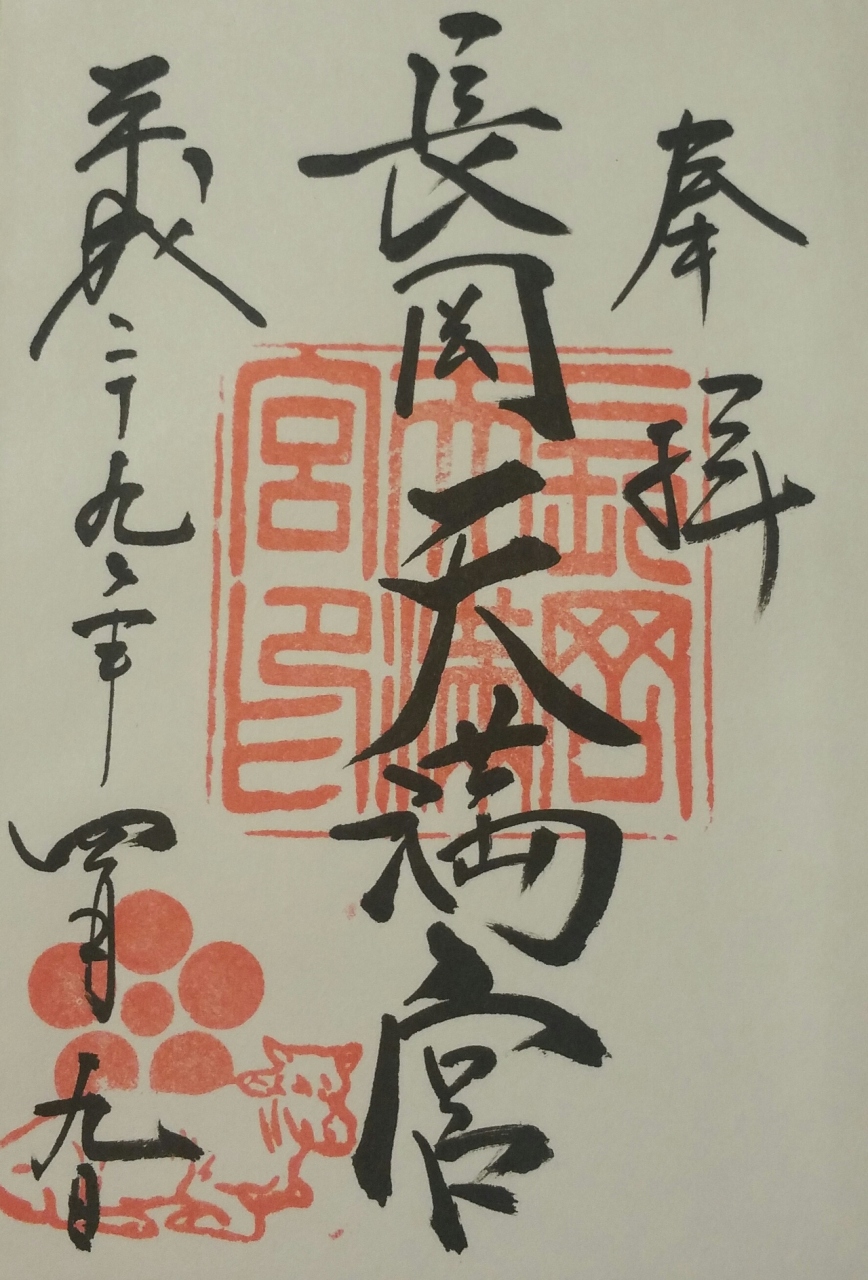 奉拝
長岡天満宮
平成二十九年四月九日
長岡
天満
宮印